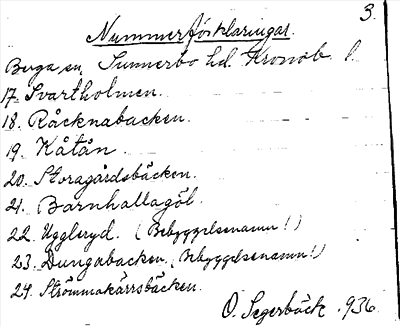 3.
Nummerförklaringar.
Buga sn, Sunnerbo hd. Kronob. l.
17. Svartholmen.
18. Råcknabacken.
19. Kåtån.
20. Storagårdsbäcken.
21. Barnhallagöl.
22. Uggleryd. (Bebyggelsenamn!)
23. Dungabacken. (Bebyggelsenamn!)
24. Strömmakärrsbäcken.
O. Segerbäck. 936.